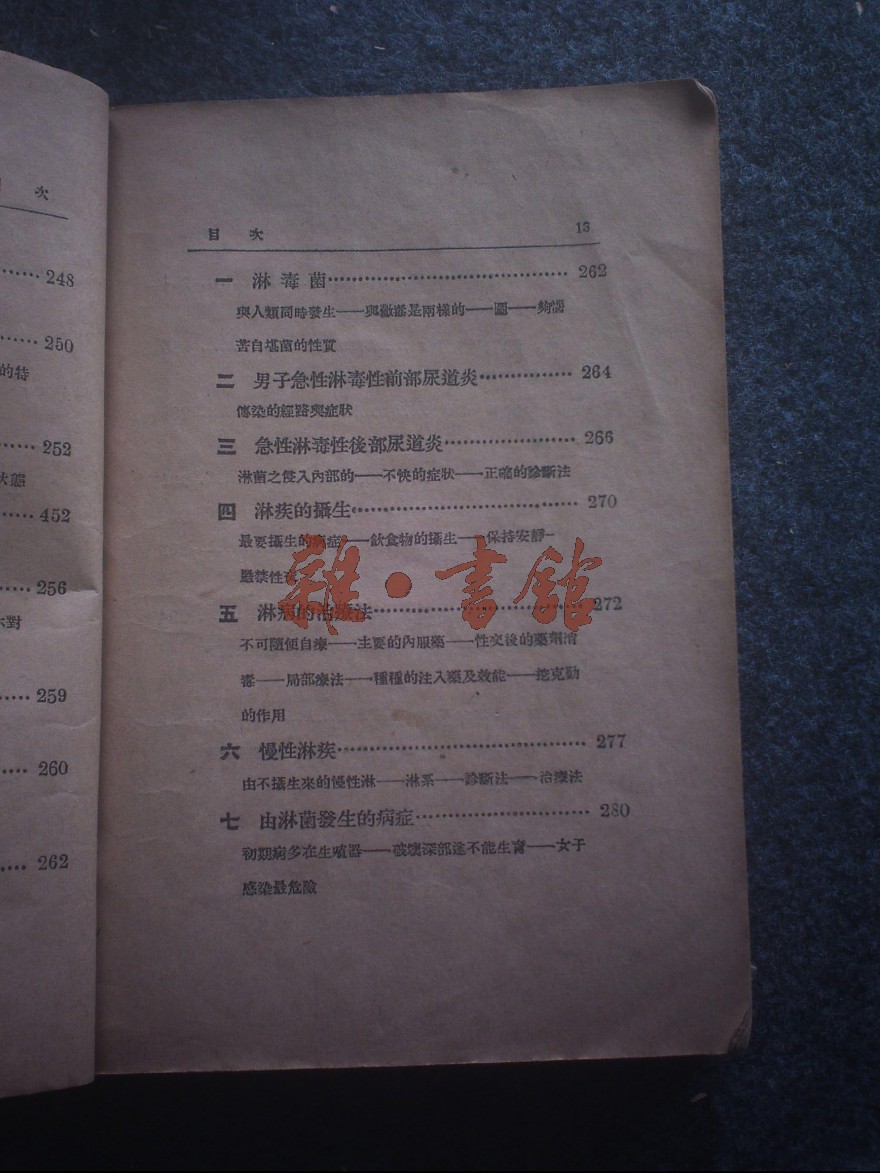 次
248
250
的特
252
狀態
452
256
對
259
260
262
目 次 13
一 淋毒菌 262
與人類同時發生——與黴毒是兩樣的——圖——夠諾
苦自堪菌的性質
二 男子急性淋毒性前部尿道炎 264
傳染的經路與症狀
三 急性淋毒性後部尿道炎 266
淋菌之侵入內部的——不快的症狀——正確的診斷法
四 淋疾的攝生 270
最要攝生的病症——飲食物的攝生——保持安靜—
嚴禁性
五 淋病的治療法 272
不可隨便自療——主要的內服藥——性交後的藥劑消
毒——局部療法——種種的注入藥及效能——地克勤
的作用
六 慢性淋疾 277
由不攝生來的慢性淋——淋系——診斷法——治療法
七 由淋菌發生的病症 280
初期病多在生殖器——破壞深部遂不能生育——女子
感染最危險
雜·書館